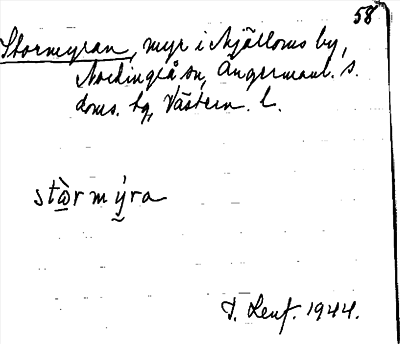 58
Stormyran, myr i Mjälloms by,
Nordingrå sn, Ångermanl. s.
doms. tg, Västern. l.
stώrmýra
T. Lenf. 1944.